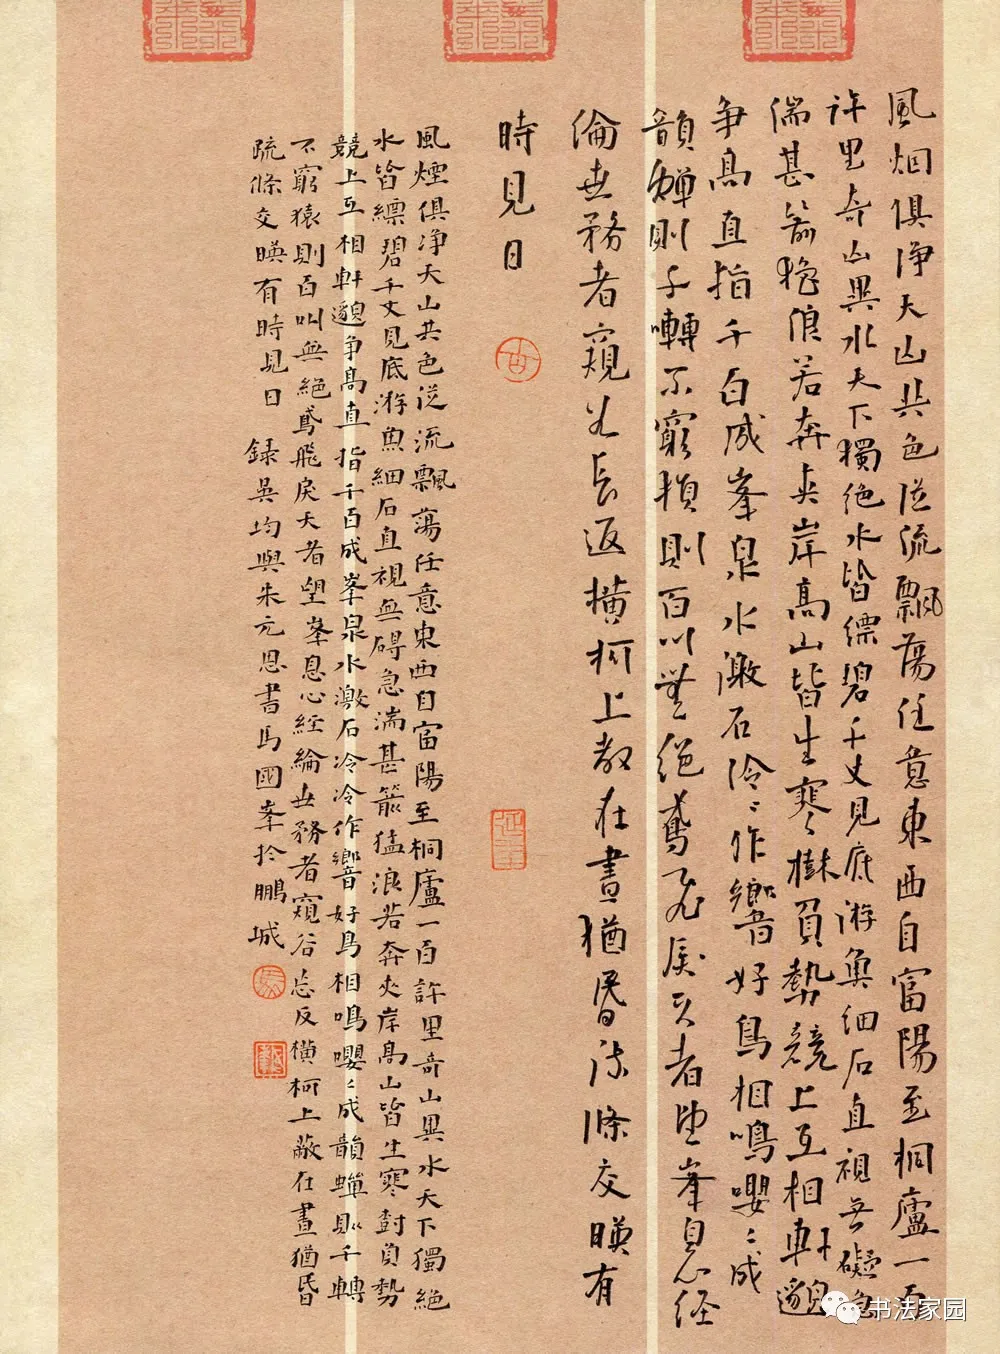 風烟俱淨天山共色從流飄蕩任意東西自富陽至桐廬一百
許里奇山異水天下獨絕水皆縹碧千丈見底游魚細石直視無礙急
湍甚箭猛浪若奔夾岸高山皆生寒樹負勢競上互相軒邈
爭高直指千百成峯泉水激石泠泠作響好鳥相鳴嚶嚶成
韻蟬則千囀不窮猿則百叫無絕鳶飛戾天者望峯息心经
倫世務者窺谷忘返橫柯上蔽在晝猶昏疏條交暎有
時見日
風煙俱淨天山共色從流飄蕩任意東西自富陽至桐廬一百許里奇山異水天下獨絕
水皆縹碧千丈見底游魚細石直視無碍急湍甚箭猛浪若奔夾岸高山皆生寒樹負勢
競上互相軒邈爭高直指千百成峯泉水激石冷冷作響好鳥相鳴嚶嚶成韻蟬則千轉
不窮猿則百叫無絕鳶飛戾天者望峯息心經綸世務者窺谷忘反橫柯上蔽在晝猶昏
疏條交暎有時見日 録吳均與朱元思書馬國峯於鵬城
书法家园